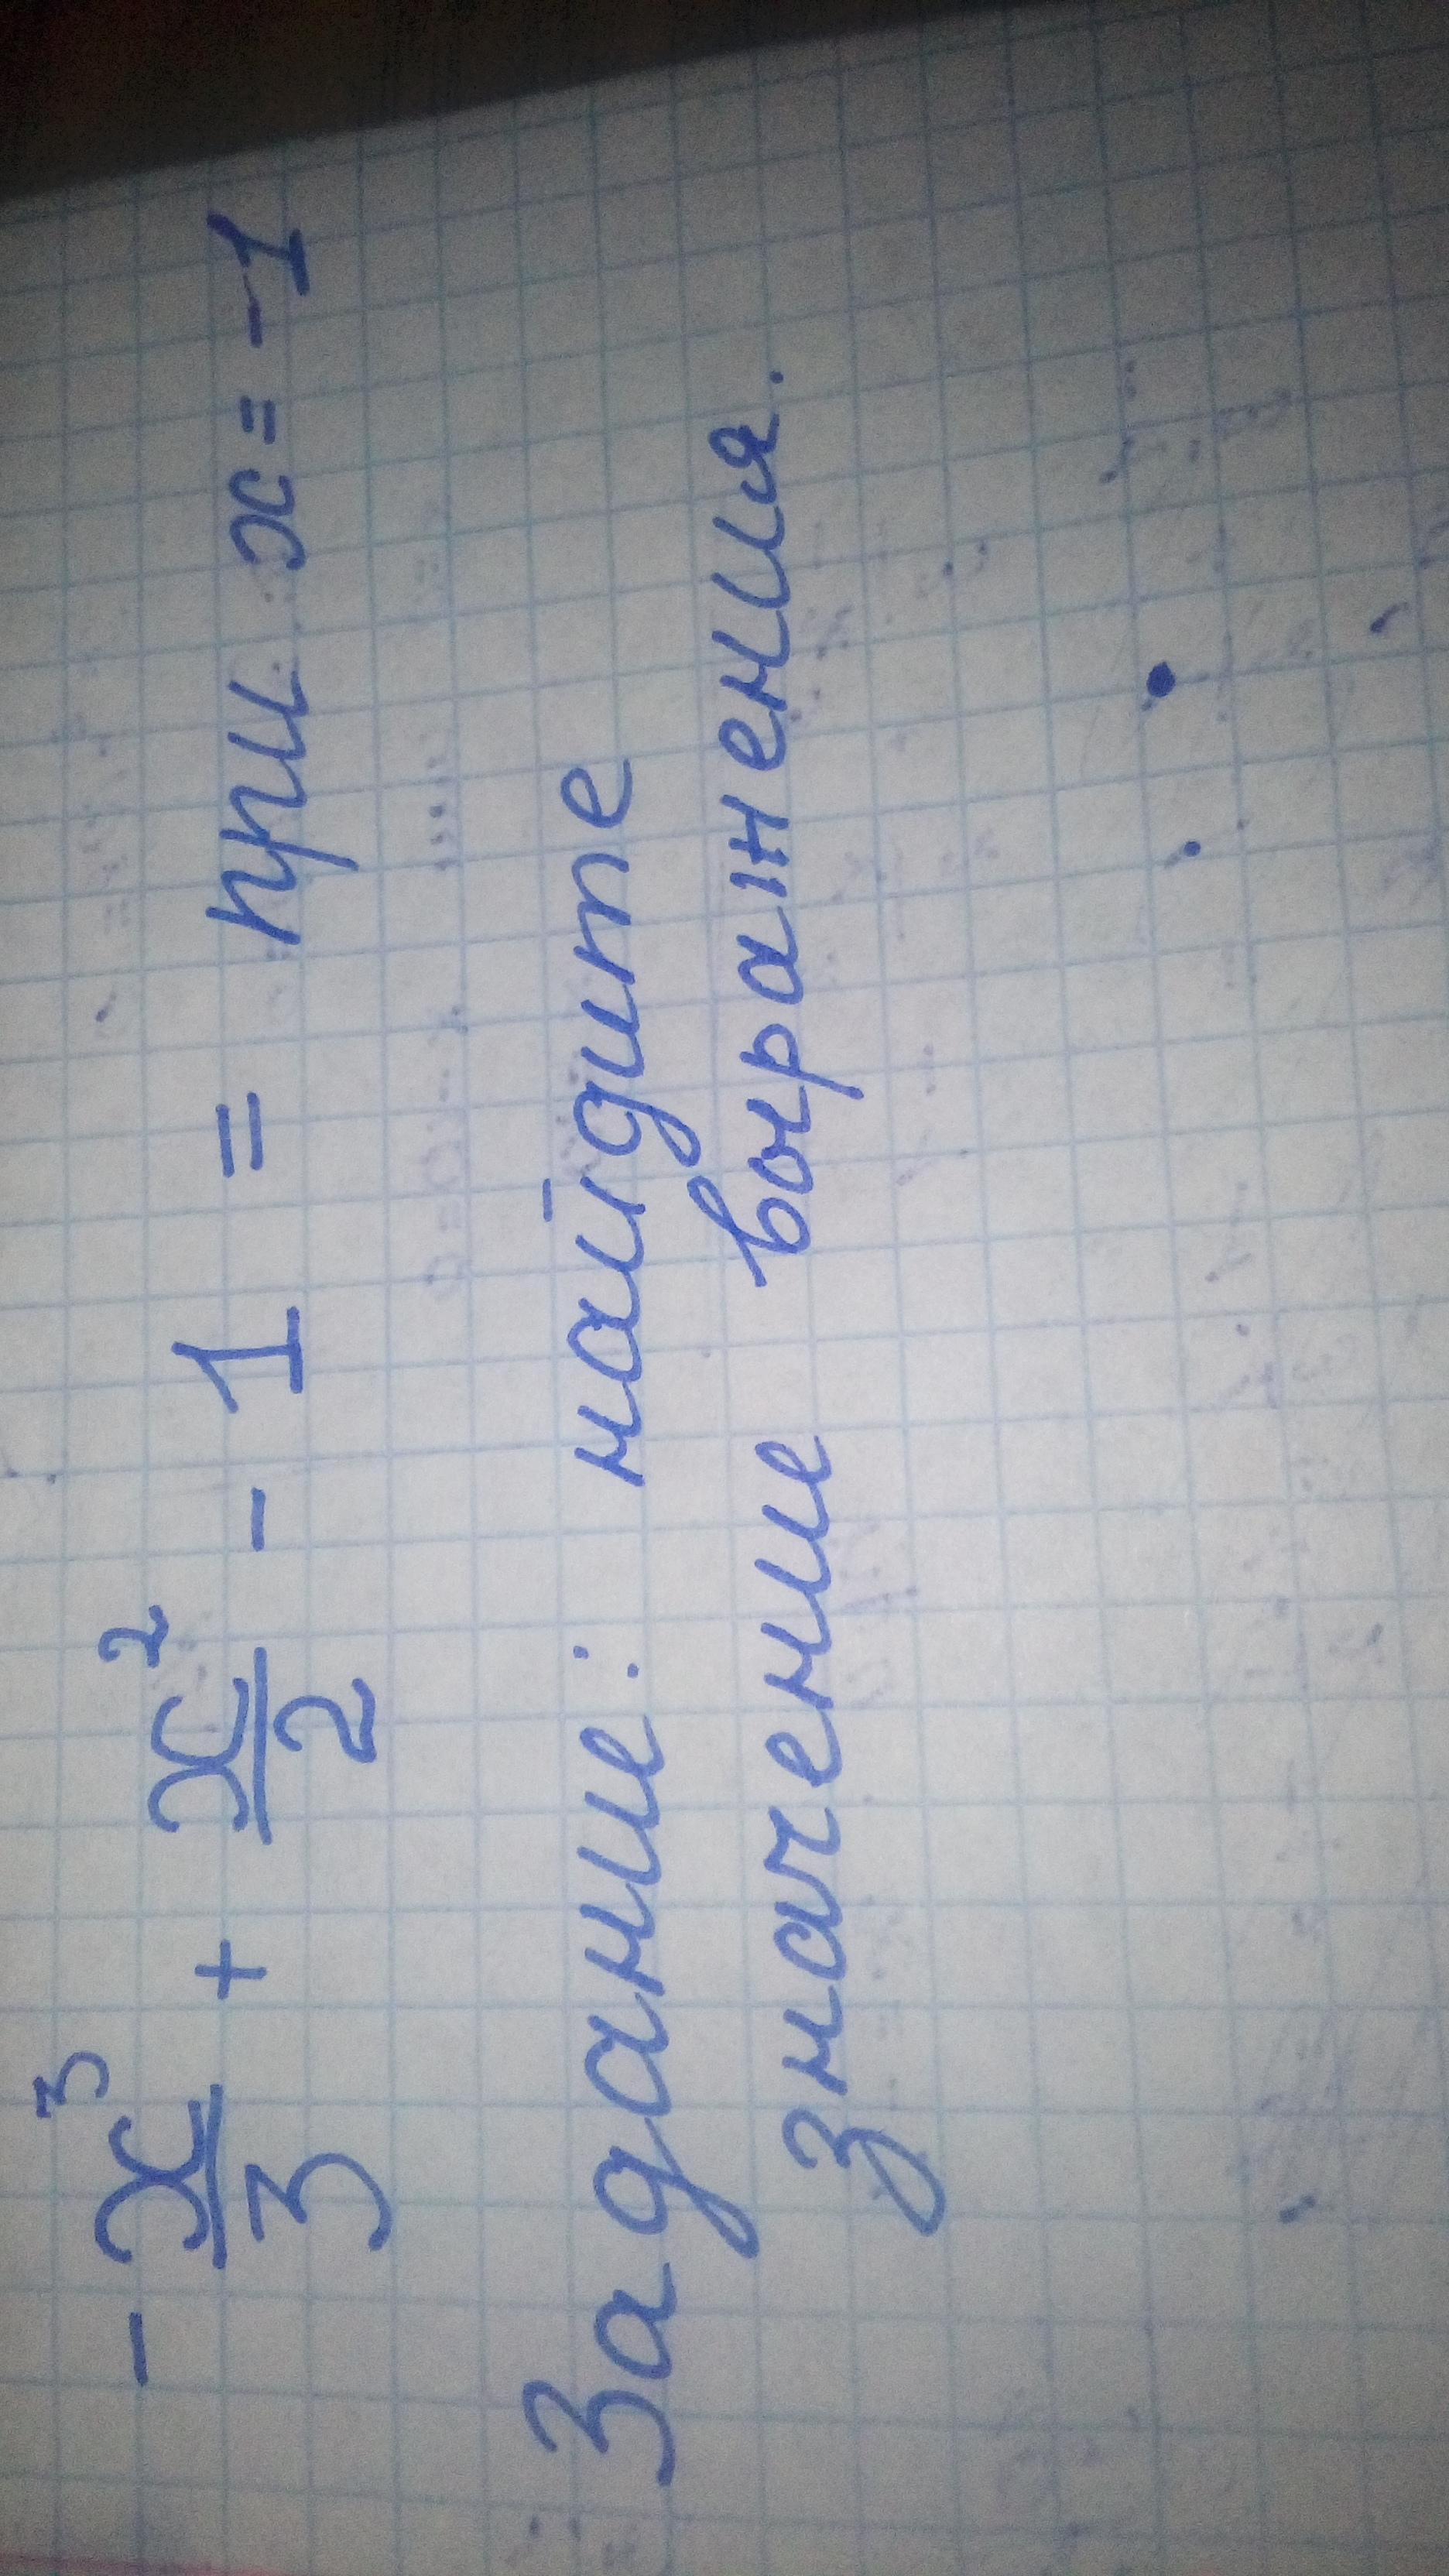 - x³/3 + x²/2 - 1 = при x = -1
Задание: найдите
значение выражения.